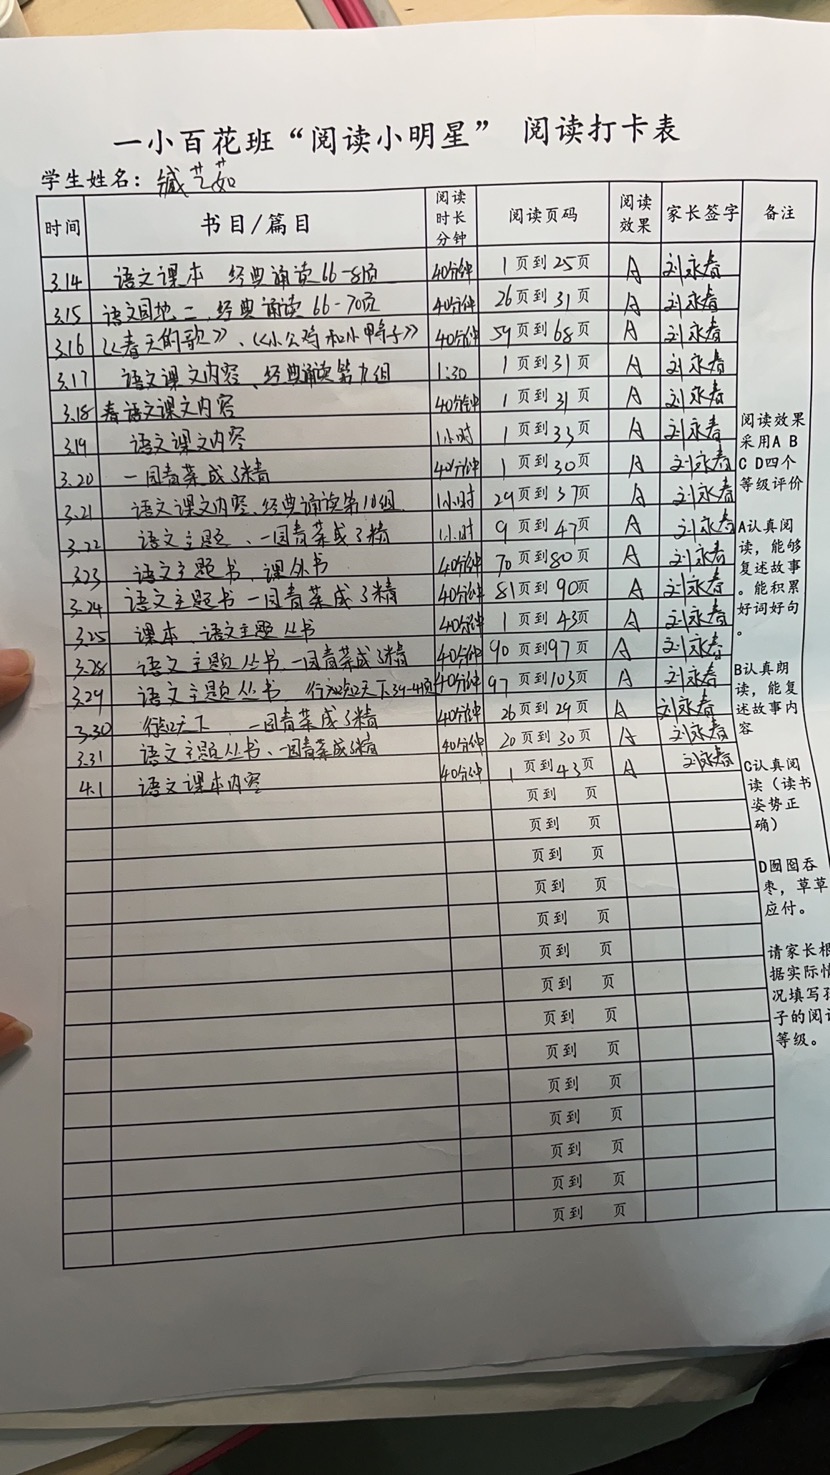 一小百花班“阅读小明星” 阅读打卡表
学生姓名：臧艺茹
时间 书目/篇目 阅读时长分钟 阅读页码 阅读效果 家长签字 备注
3.14 语文课本 经典诵读66-81页 40分钟 1页到25页 A 刘永春
3.15 语文园地二、经典诵读66-70页 40分钟 26页到31页 A 刘永春
3.16 《春天的歌》、《小公鸡和小鸭子》 40分钟 59页到68页 A 刘永春
3.17 语文课文内容、经典诵读第九组 1:30 1页到31页 A 刘永春
3.18 看语文课文内容 40分钟 1页到31页 A 刘永春
3.19 语文课文内容 1小时 1页到33页 A 刘永春
3.20 一园青菜成了精 40分钟 1页到30页 A 刘永春
3.21 语文课文内容、经典诵读第10组 1小时 29页到37页 A 刘永春
3.22 语文主题、一园青菜成了精 1小时 9页到47页 A 刘永春
3.23 语文主题书、课外书 40分钟 70页到80页 A 刘永春
3.24 语文主题书 一园青菜成了精 40分钟 81页到90页 A 刘永春
3.25 课本、语文主题丛书 40分钟 1页到43页 A 刘永春
3.28 语文主题丛书、一园青菜成了精 40分钟 90页到97页 A 刘永春
3.29 语文主题丛书 天下39-41页 40分钟 97页到103页 A 刘永春
3.30 天下、一园青菜成了精 40分钟 26页到29页 A 刘永春
3.31 语文主题丛书、一园青菜成了精 40分钟 20页到30页 A 刘永春
4.1 语文课本内容 40分钟 1页到43页 A 刘永春
页到 页
页到 页
页到 页
页到 页
页到 页
页到 页
页到 页
页到 页
页到 页
页到 页
页到 页
页到 页
页到 页
页到 页
阅读效果
采用A B
C D四个
等级评价
A认真阅
读，能够
复述故事
。能积累
好词好句
。
B认真朗
读，能复
述故事内
容
C认真阅
读（读书
姿势正
确）
D囫囵吞
枣，草草
应付。
请家长根
据实际情
况填写孩
子的阅读
等级。